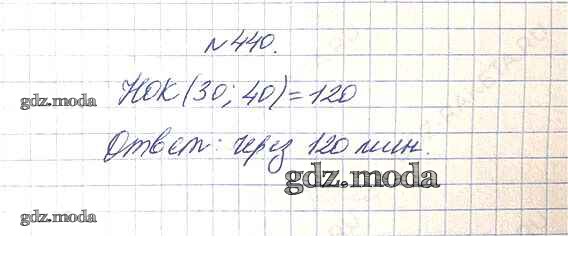 №440.
НОК(30; 40)=120
gdz.moda
Ответ: через 120 мин.
gdz.moda
gdz.moda